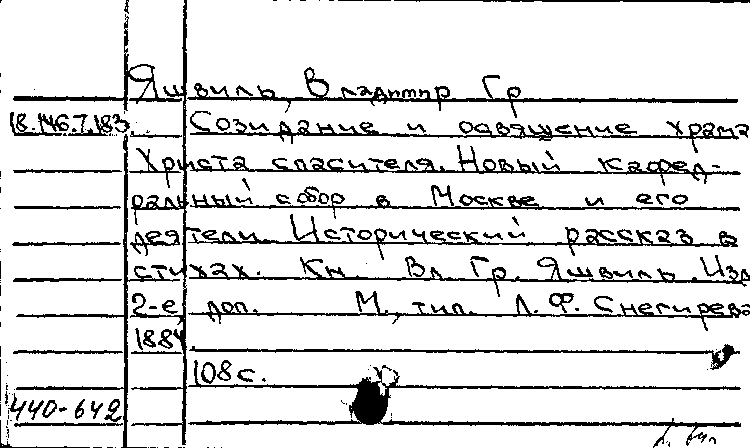 Яшвиль, Владимир Гр
18.146.7.183. Созидание и освящение храма
Христа спасителя. Новый кафед-
ральный собор в Москве и его
деятели. Исторический рассказ в
стихах. Кн. Вл. Гр. Яшвиль. Изд
2-е, доп. М., тип. Л. Ф. Снегирева
1884.
108 с.
440-642